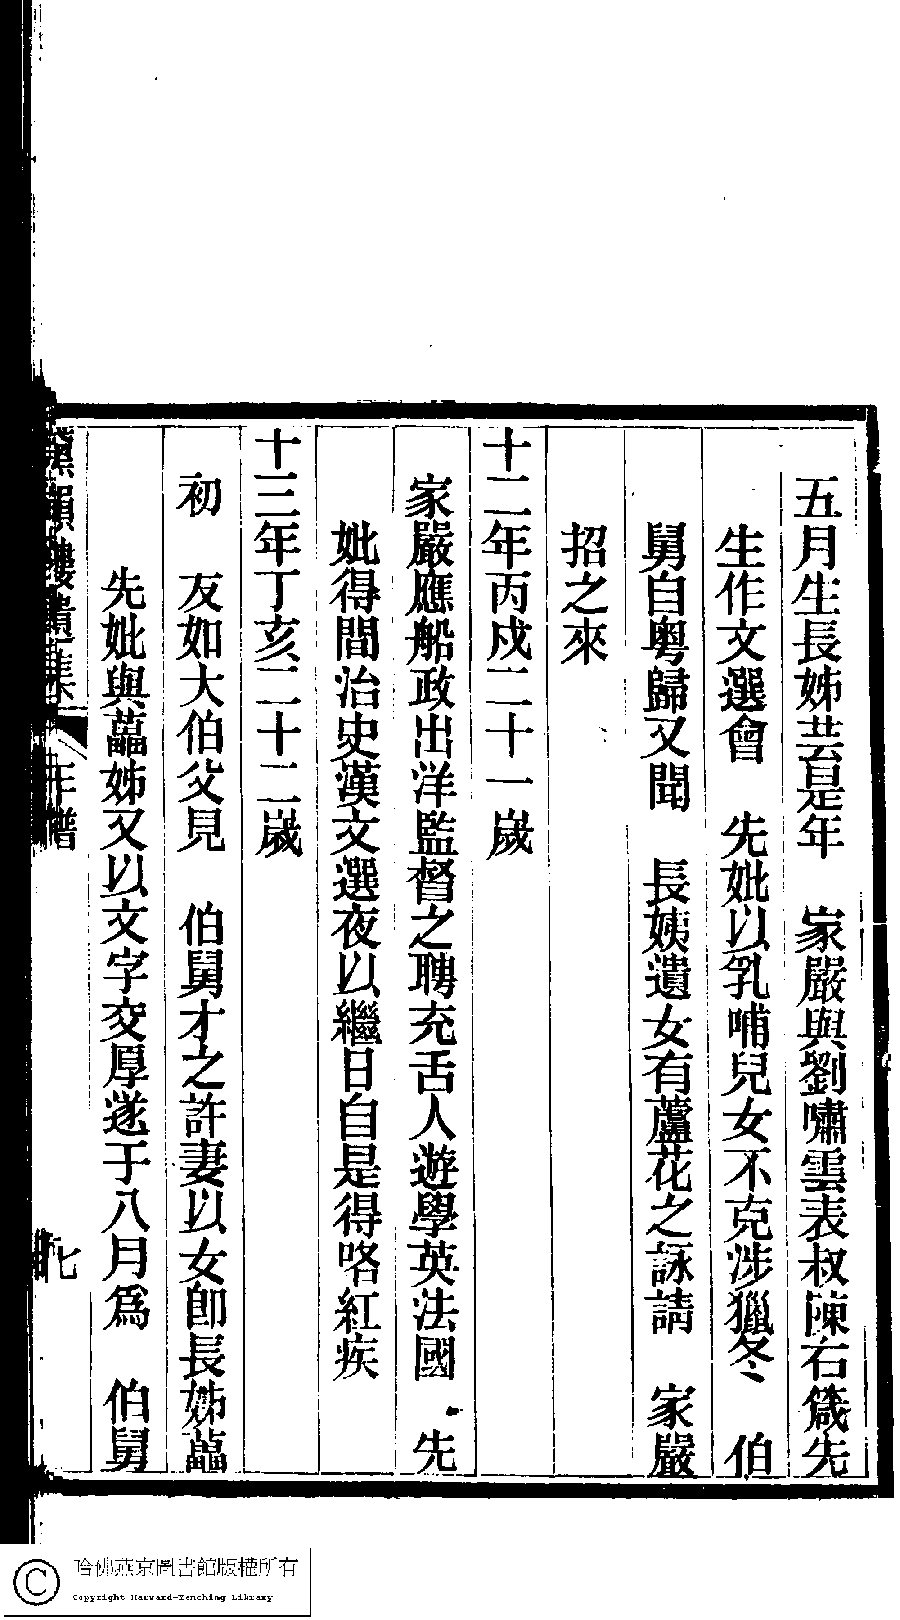 五月生長姊芸是年　家嚴與劉嘯雲表叔陳右箴先
生作文選會　先妣以乳哺兒女不克涉獵冬　伯
舅自粵歸又聞　長姨遺女有蘆花之詠請　家嚴
招之來
十二年丙戍二十一歲
家嚴應船政出洋監督之聘充舌人遊學英法國　先
妣得間治史漢文選夜以繼日自是得咯紅疾
十三年丁亥二十二歲
初　友如大伯父見　伯舅才之許妻以女卽長姊蘊
先妣與蘊姊又以文字交厚遂于八月爲　伯舅
黛韻樓遺集　年譜　七
哈佛燕京圖書館版權所有
Copyright Harvard-Yenching Library